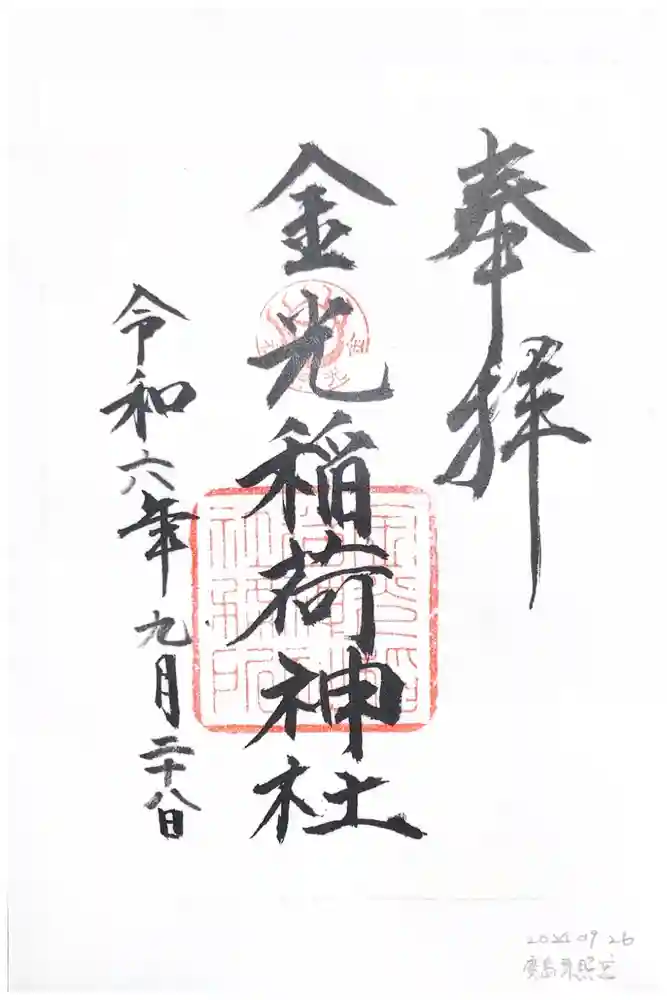 奉拝
金光稲荷神社
令和六年九月二十八日
2024 09 26
廣島東照宮